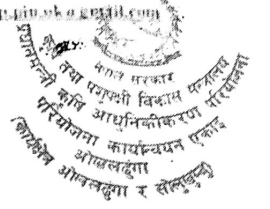 नेपाल सरकार
कृषि तथा पशुपन्छी विकास मन्त्रालय
प्रधानमन्त्री कृषि आधुनिकीकरण परियोजना
परियोजना कार्यान्वयन एकाइ
ओखलढुंगा
कार्यक्षेत्र ओखलढुंगा र सोलुखुम्बु